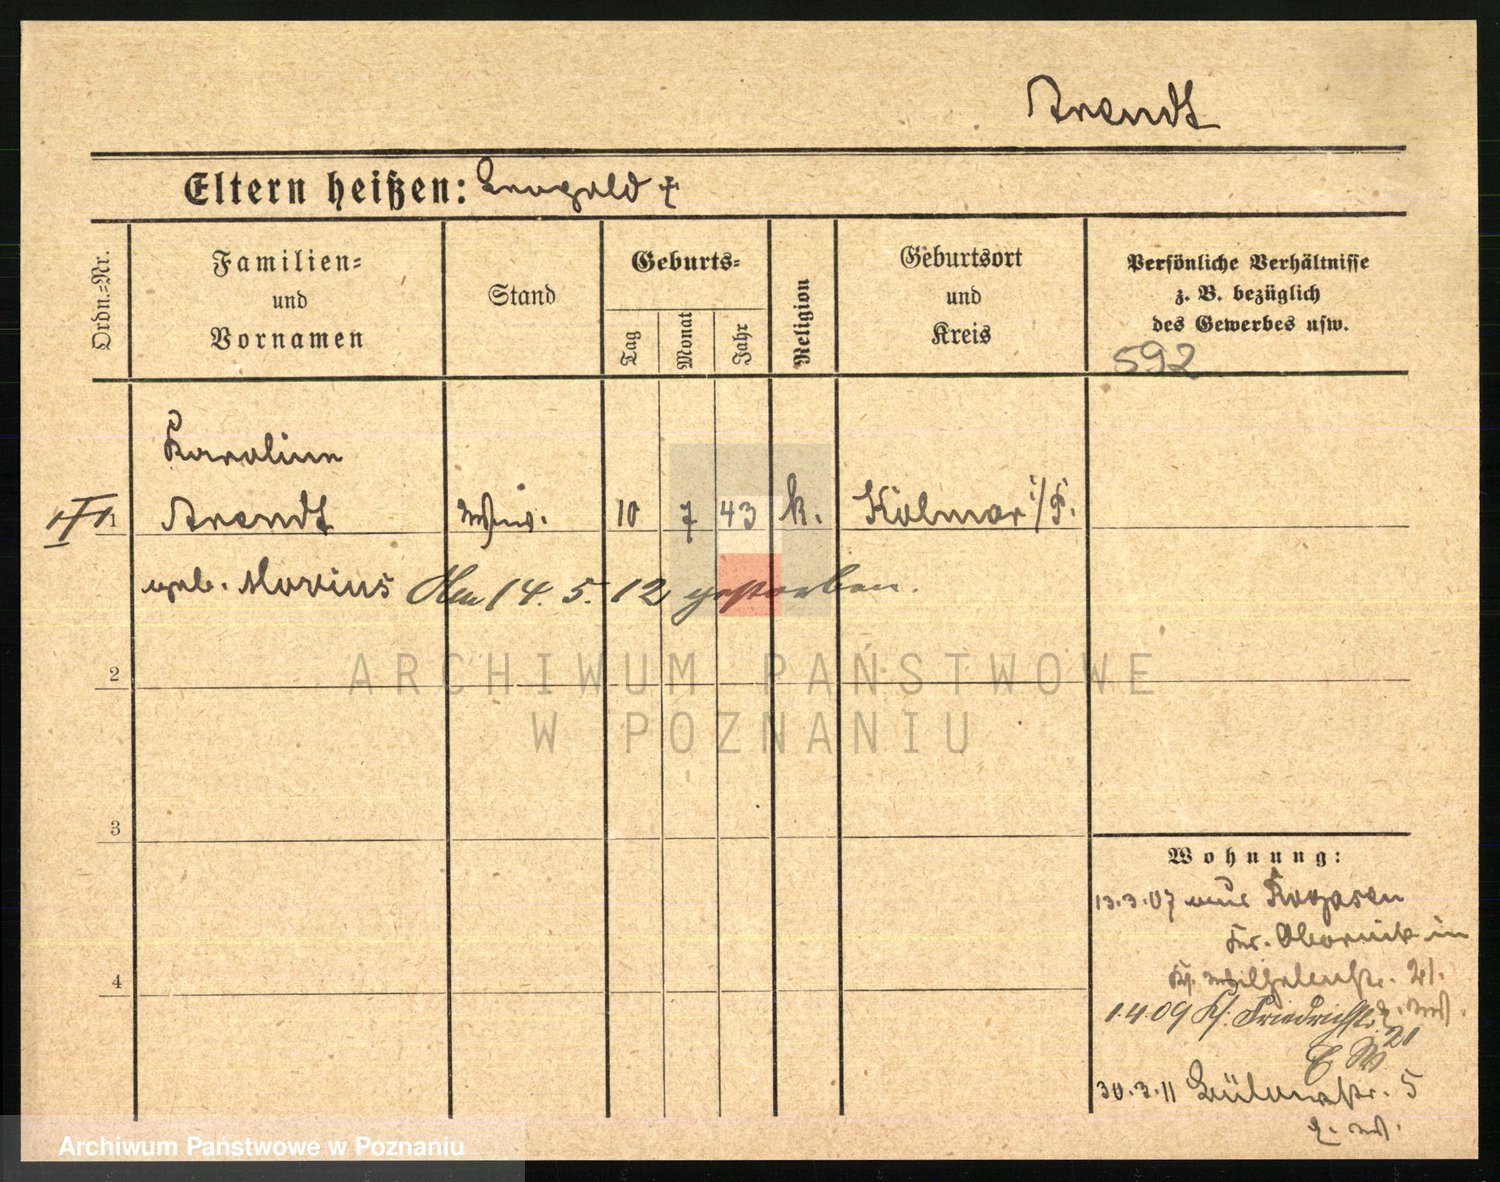 Arendt
Eltern heißen: Leopold †
Ordn.-Nr.
Familien-
und
Vornamen
Stand
Geburts-
Tag
Monat
Jahr
Religion
Geburtsort
und
Kreis
Persönliche Verhältnisse
z. B. bezüglich
des Gewerbes usw.
592
Karoline
1 Arendt 10 7 43 k. Kolmar i/P.
geb. Morius Am 14. 5. 12 gestorben.
2
ARCHIWUM PAŃSTWOWE
W POZNANIU
3
Wohnung:
13.3.07 aus Rogasen
Kr. Obornik in
4
Pf. Wilhelmstr. 21.
1.4.09 Pf. Friedrichstr. 21
30.3.11 Bülowstr. 5
Archiwum Państwowe w Poznaniu